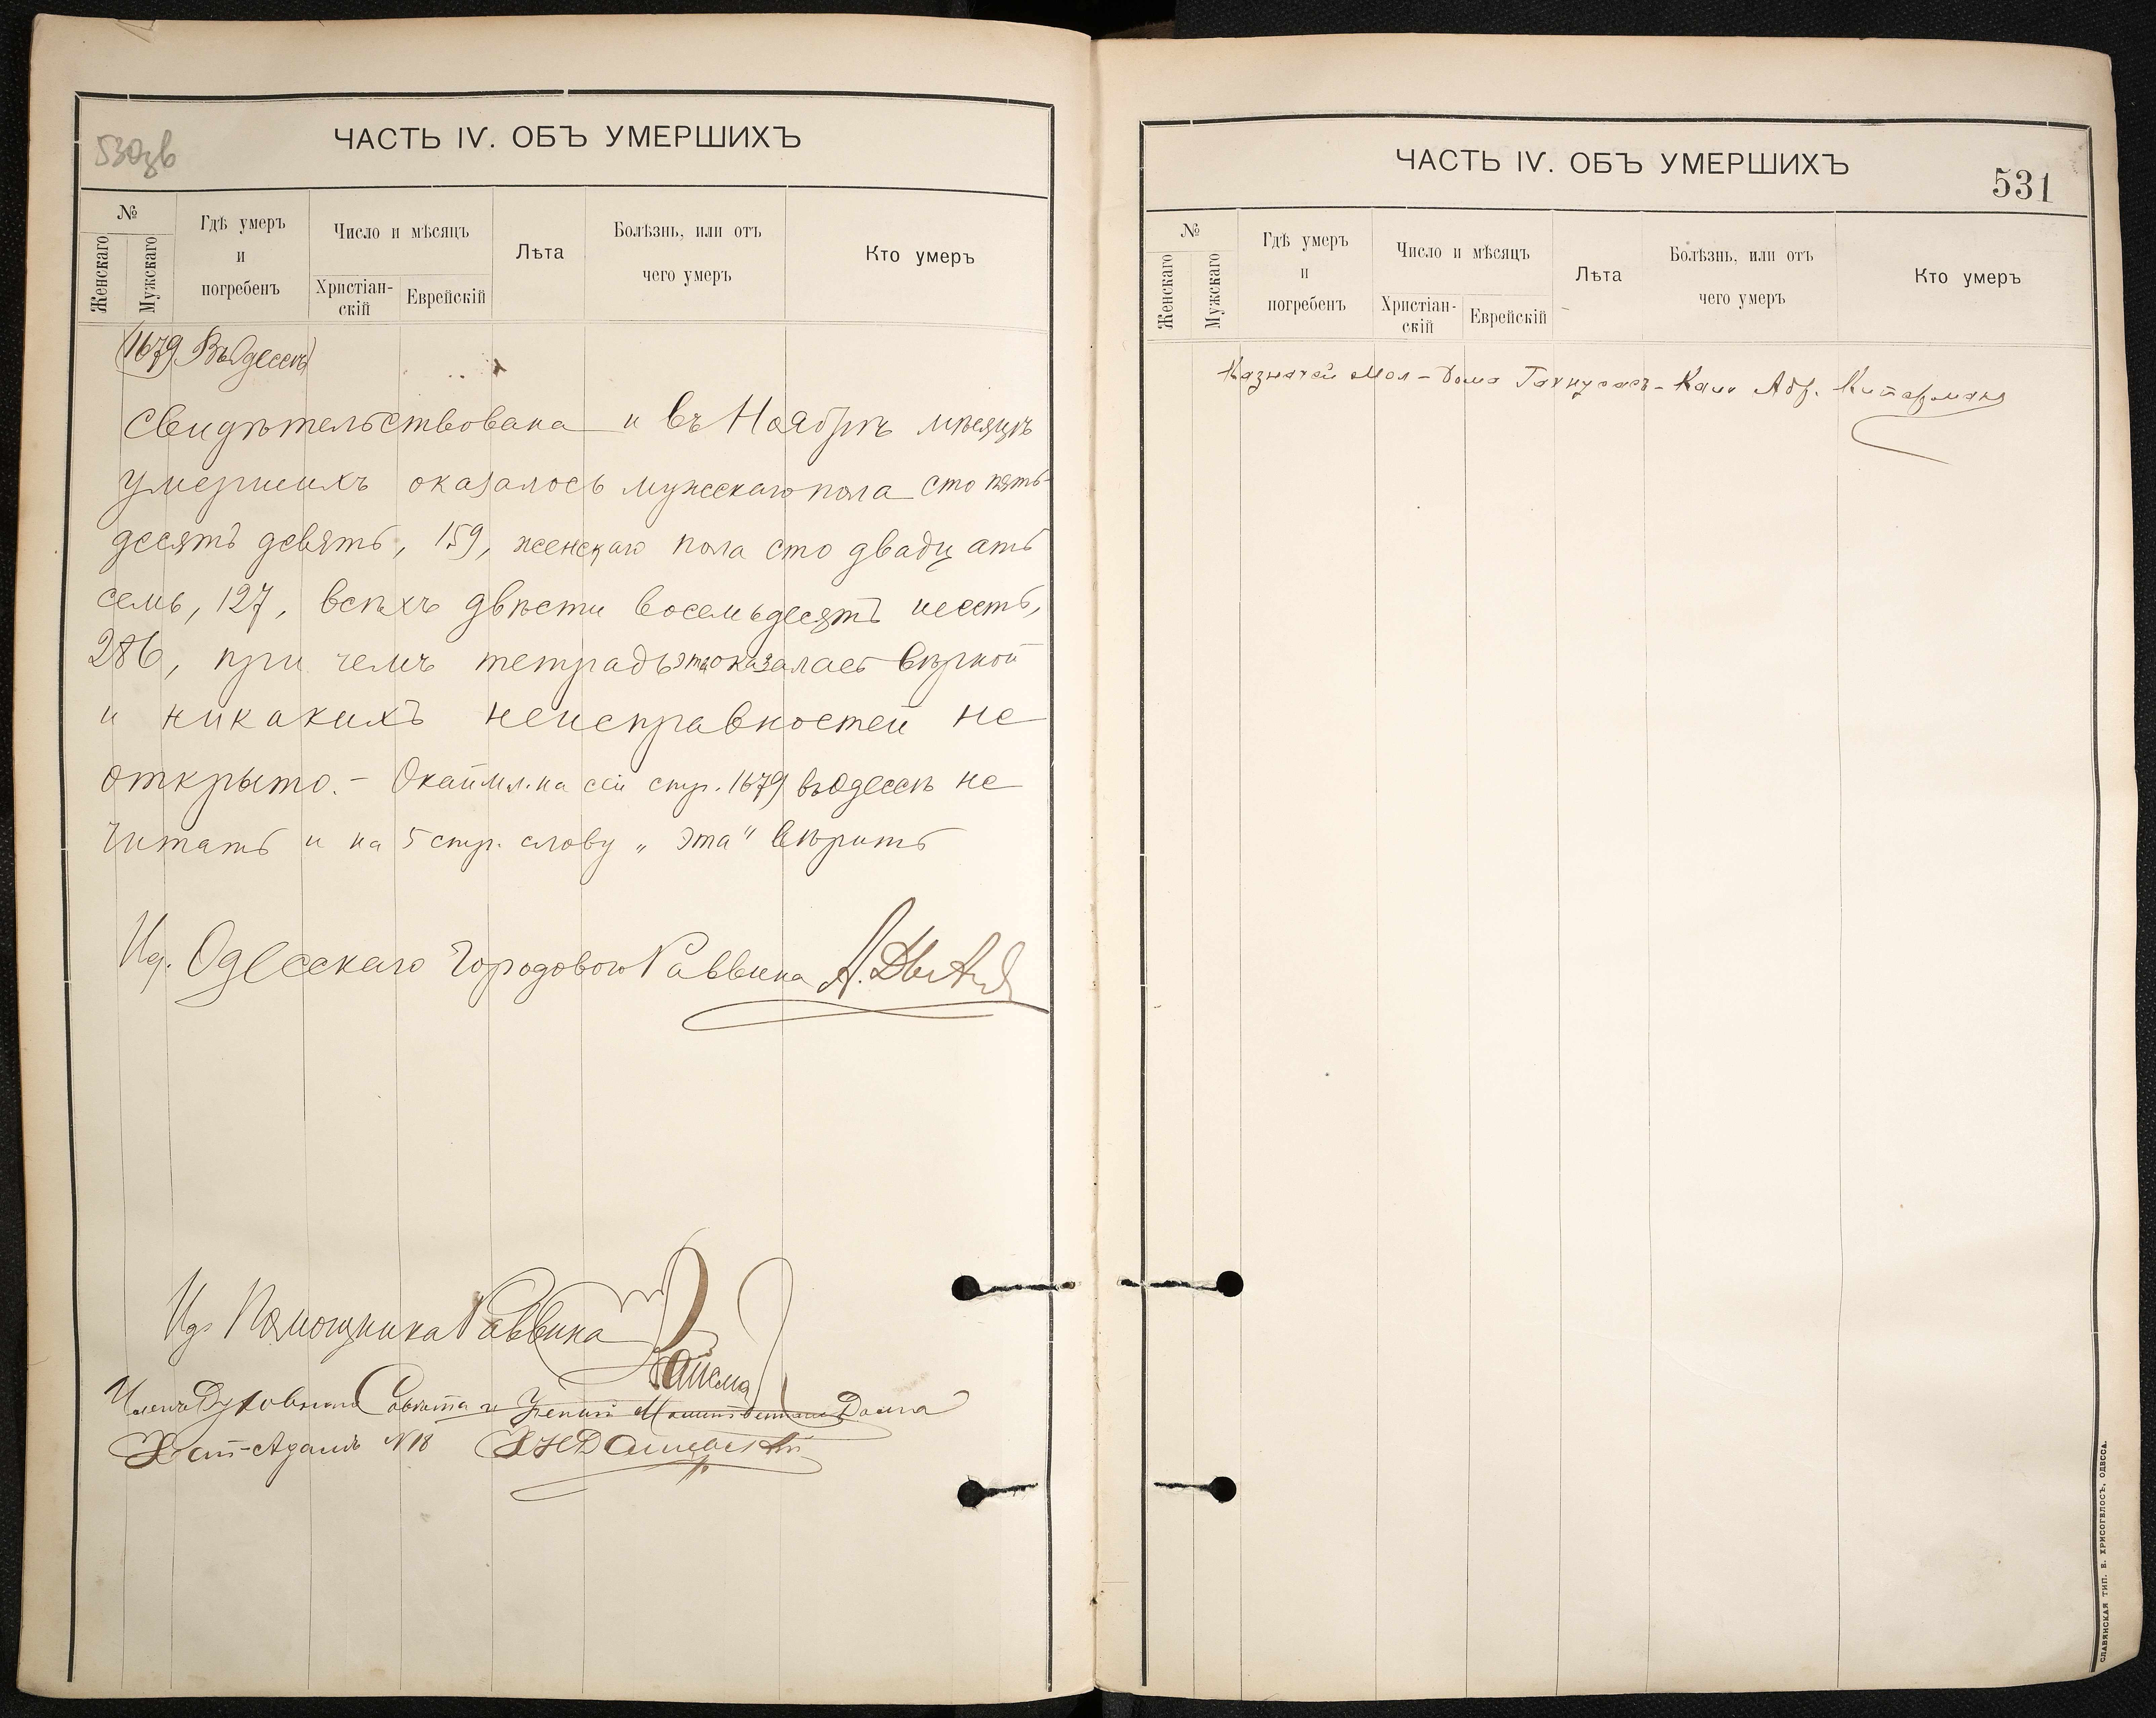 530зв
ЧАСТЬ IV. ОБЪ УМЕРШИХЪ
№
Женскаго
Мужскаго
Гдѣ умеръ
и
погребенъ
Число и мѣсяцъ
Христіан-
скій
Еврейскій
Лѣта
Болѣзнь, или отъ
чего умеръ
Кто умеръ
1679 Въ Одессѣ
Свидѣтельствована и въ Ноябрѣ мѣсяцѣ
умершихъ оказалось мужскаго пола сто пять-
десятъ девять, 159, женскаго пола сто двадцать
семь, 127, всѣхъ двѣсти восемьдесятъ шесть,
286, при чемъ тетрадь эта оказалась вѣрной
и никакихъ неисправностей не
открыто. - Окаймл. на сей стр. 1679 въ Одессѣ не
читать и на 5 стр. слову „эта" вѣрить
Ид. Одесскаго Городового Раввина А.
Ид. Помощника Раввина
Членъ Духовнаго Совѣта и Ученый Молитвеннаго Дома
№ 18
ЧАСТЬ IV. ОБЪ УМЕРШИХЪ
531
№
Женскаго
Мужскаго
Гдѣ умеръ
и
погребенъ
Число и мѣсяцъ
Христіан-
скій
Еврейскій
Лѣта
Болѣзнь, или отъ
чего умеръ
Кто умеръ
Казначей Мол - Дома Абр. Китерманъ
СЛАВЯНСКАЯ ТИП. Е. ХРИСОГЕЛОСЪ, ОДЕССА.